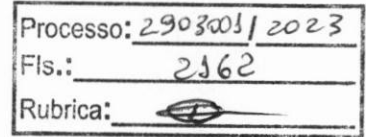 Processo: 2903001/2023
Fls.: 2162
Rubrica: